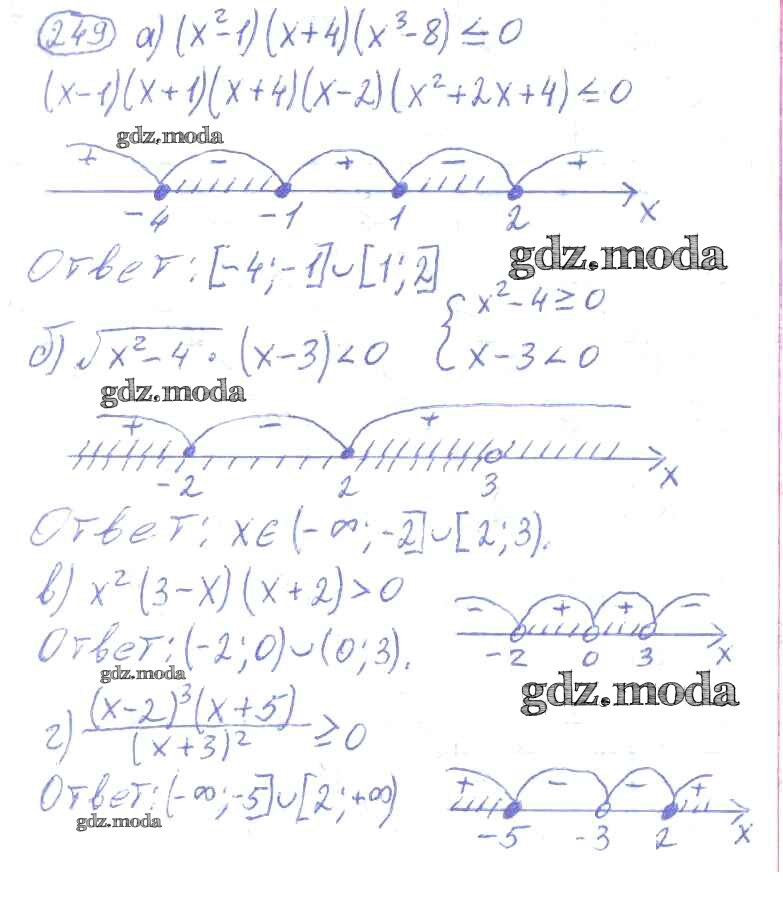 249 а) (x²-1)(x+4)(x³-8) ≤ 0
(x-1)(x+1)(x+4)(x-2)(x²+2x+4) ≤ 0
gdz.moda
+ - + - +
-4 -1 1 2 x
Ответ: [-4;-1]∪[1;2]
gdz.moda
б) √(x²-4) · (x-3) < 0 { x²-4 ≥ 0
x-3 < 0
gdz.moda
+ - +
-2 2 3 x
Ответ: x∈(-∞;-2]∪[2;3).
в) x²(3-x)(x+2) > 0
- + + -
-2 0 3 x
Ответ: (-2;0)∪(0;3).
gdz.moda
gdz.moda
г) (x-2)³(x+5) / (x+3)² ≥ 0
+ - - +
-5 -3 2 x
Ответ: (-∞;-5]∪[2;+∞)
gdz.moda